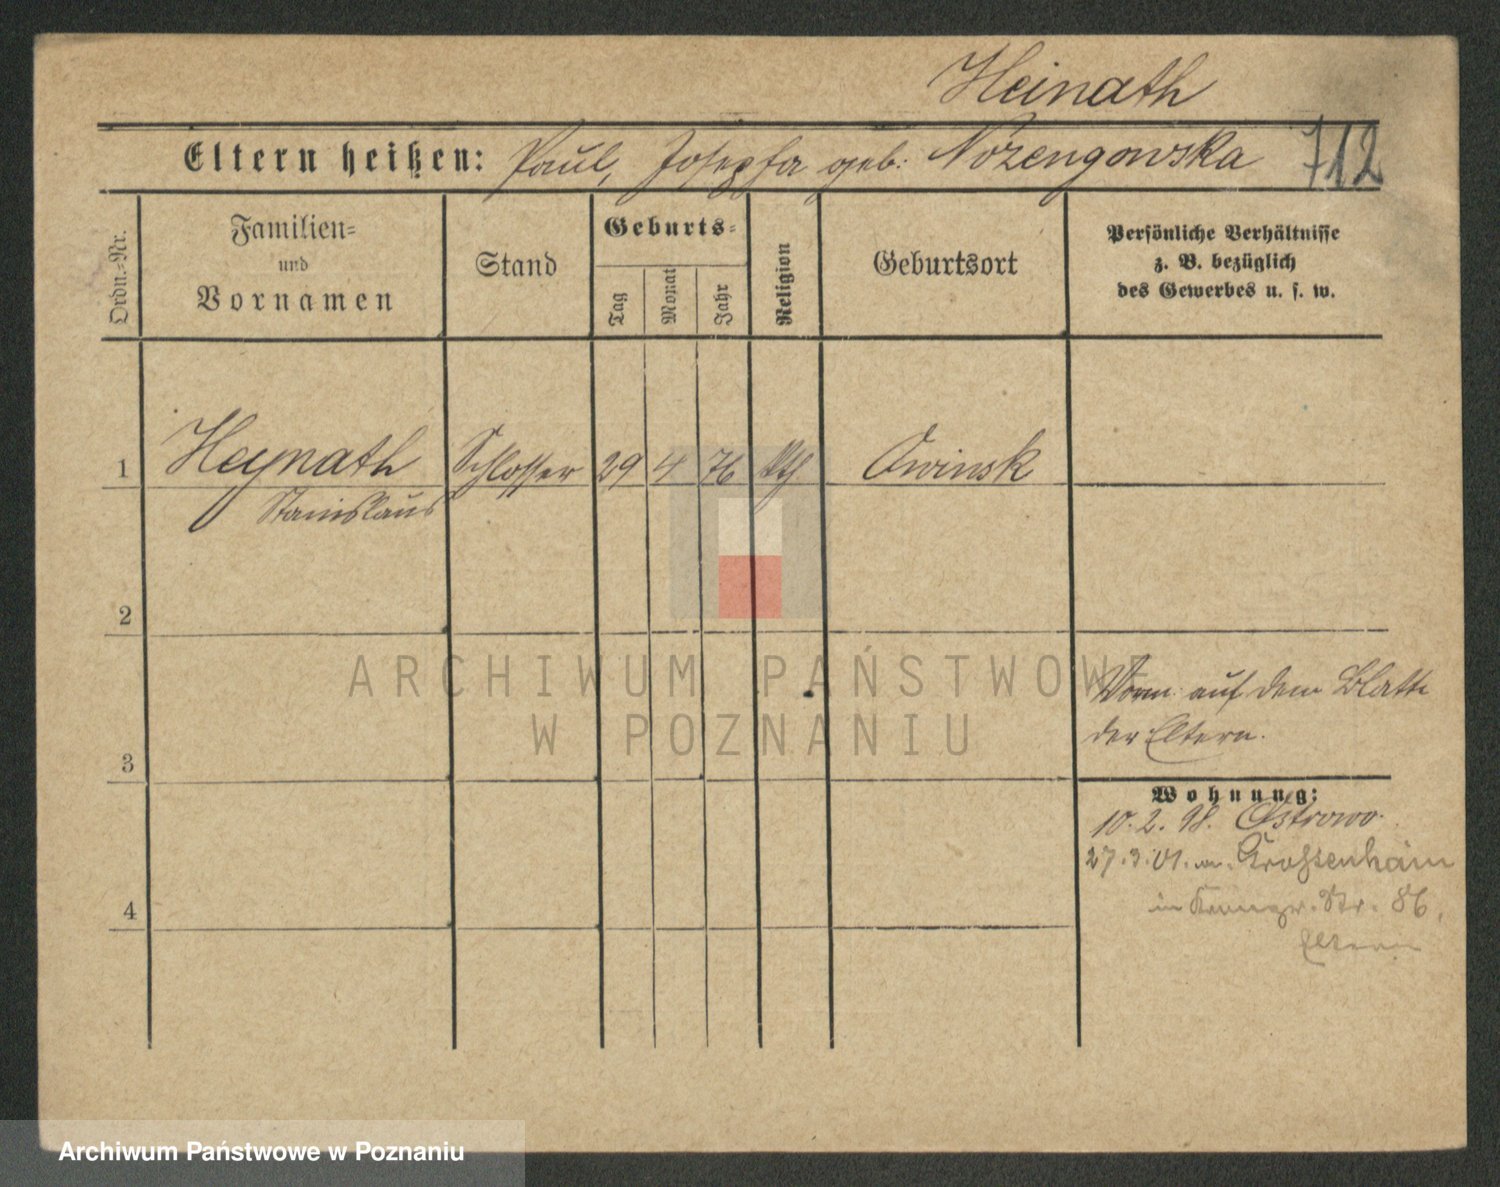 Heinath
Eltern heißen: Paul, Josepfa geb: Nozengowska 712
Ordn.=Nr.
Familien=
und
Vornamen
Stand
Geburts=
Tag
Monat
Jahr
Religion
Geburtsort
Persönliche Verhältnisse
z. B. bezüglich
des Gewerbes u. s. w.
1 Heynath Schlosser 29 4 76 kth Owinsk
Stanislaus
2
ARCHIWUM PAŃSTWOWE
W POZNANIU
Vorm: auf dem Blatte
der Eltern.
3
Wohnung:
10. 2. 98. Ostrowo.
27. 3. 01. Grossenhain
4
in Str. 86,
Eltern
Archiwum Państwowe w Poznaniu